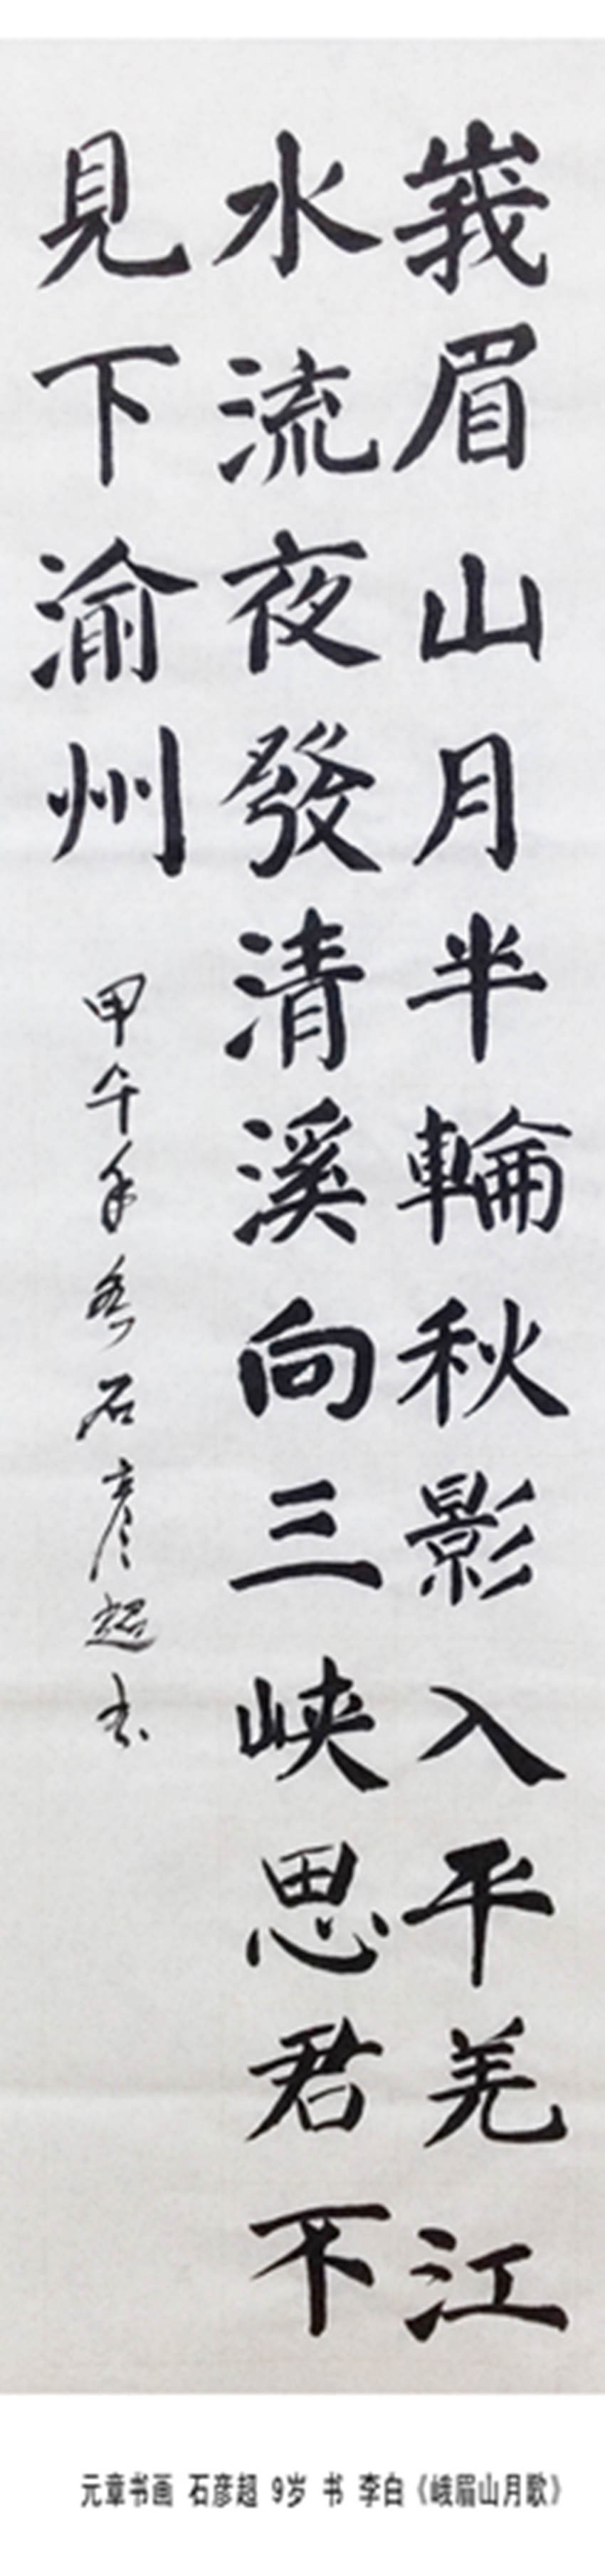 峩眉山月半輪秋影入平羌江
水流夜發清溪向三峡思君不
見下渝州
甲午年冬石彦超书
元章书画 石彦超 9岁 书 李白《峨眉山月歌》